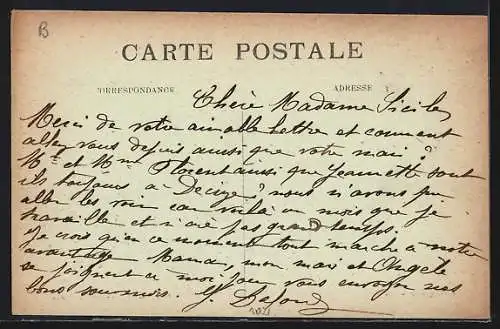 B
CARTE POSTALE
CORRESPONDANCE ADRESSE
Chère Madame
Merci de votre aimable lettre et comment
allez vous depuis ainsi que votre mari ?
Mr et Mme Florent ainsi que Jeannette sont
ils toujours à Decize ? nous n'avons pu
aller les voir car voilà un mois que je
travaille et n'ai pas grand temps.
Je crois qu'en ce moment tout marche à notre
avantage Maman, mon mari et Angèle
se joignent à moi pour vous envoyer nos
bons souvenirs.